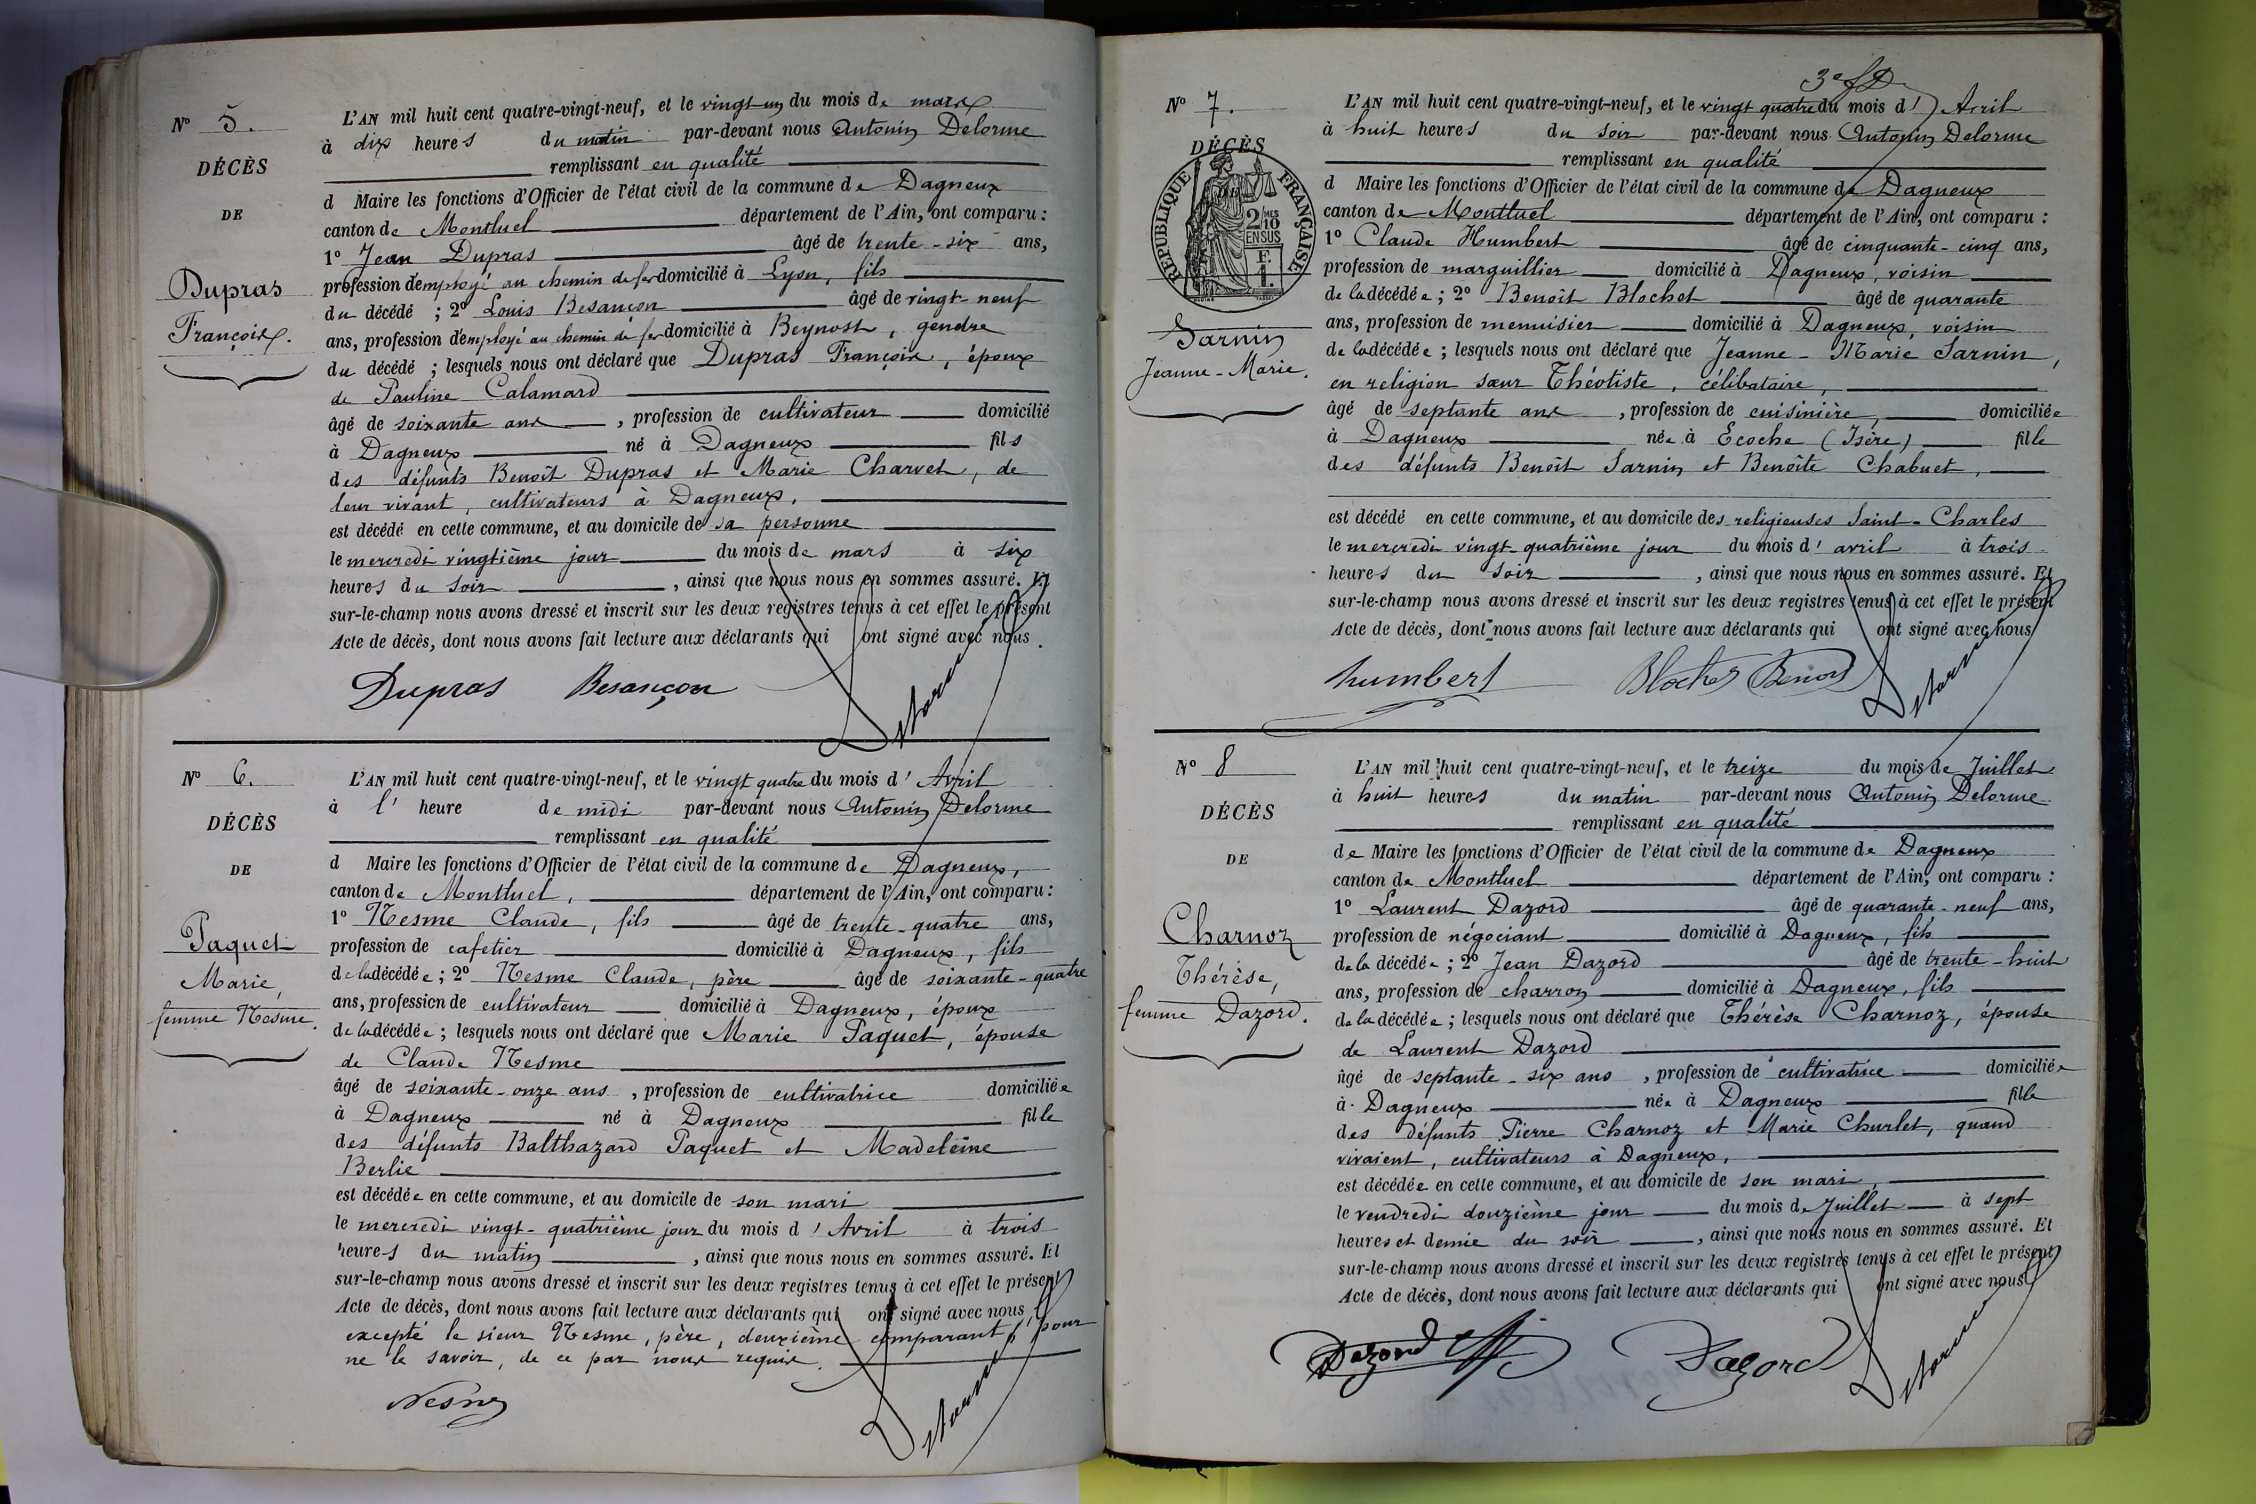 N° 5.
DÉCÈS
DE
Dupras
François.
L'AN mil huit cent quatre-vingt-neuf, et le vingt un du mois de mars
à dix heures du matin par-devant nous Antonin Delorme
remplissant en qualité
d Maire les fonctions d'Officier de l'état civil de la commune de Dagneux
canton de Montluel département de l'Ain, ont comparu :
1° Jean Dupras âgé de trente-six ans,
profession d'employé au chemin de fer domicilié à Lyon, fils
du décédé ; 2° Louis Besançon âgé de vingt-neuf
ans, profession d'employé au chemin de fer domicilié à Beynost, gendre
du décédé ; lesquels nous ont déclaré que Dupras François, époux
de Pauline Calamard
âgé de soixante ans, profession de cultivateur domicilié
à Dagneux né à Dagneux fils
des défunts Benoît Dupras et Marie Charvet, de
leur vivant, cultivateurs à Dagneux,
est décédé en cette commune, et au domicile de sa personne
le mercredi vingtième jour du mois de mars à six
heures du soir, ainsi que nous nous en sommes assuré. Et
sur-le-champ nous avons dressé et inscrit sur les deux registres tenus à cet effet le présent
Acte de décès, dont nous avons fait lecture aux déclarants qui ont signé avec nous.
Dupras Besançon Delorme
N° 6.
DÉCÈS
DE
Paquet
Marie,
femme Nesme.
L'AN mil huit cent quatre-vingt-neuf, et le vingt quatre du mois d'Avril
à l' heure de midi par-devant nous Antonin Delorme
remplissant en qualité
d Maire les fonctions d'Officier de l'état civil de la commune de Dagneux,
canton de Montluel, département de l'Ain, ont comparu :
1° Nesme Claude, fils âgé de trente-quatre ans,
profession de cafetier domicilié à Dagneux, fils
de la décédée ; 2° Nesme Claude, père âgé de soixante-quatre
ans, profession de cultivateur domicilié à Dagneux, époux
de la décédée ; lesquels nous ont déclaré que Marie Paquet, épouse
de Claude Nesme
âgé de soixante-onze ans, profession de cultivatrice domiciliée
à Dagneux né à Dagneux fille
des défunts Balthazard Paquet et Madeleine
Berlie
est décédée en cette commune, et au domicile de son mari
le mercredi vingt-quatrième jour du mois d'Avril à trois
heures du matin, ainsi que nous nous en sommes assuré. Et
sur-le-champ nous avons dressé et inscrit sur les deux registres tenus à cet effet le présent
Acte de décès, dont nous avons fait lecture aux déclarants qui ont signé avec nous,
excepté le sieur Nesme, père, deuxième comparant, pour
ne le savoir, de ce par nous requis.
Nesme Delorme
N° 7.
DÉCÈS
RÉPUBLIQUE FRANÇAISE
2/10 MES
EN SUS
F.
1.
Sarnin
Jeanne-Marie.
L'AN mil huit cent quatre-vingt-neuf, et le vingt quatre du mois d'Avril
à huit heures du soir par-devant nous Antonin Delorme
remplissant en qualité
d Maire les fonctions d'Officier de l'état civil de la commune de Dagneux
canton de Montluel département de l'Ain, ont comparu :
1° Claude Humbert âgé de cinquante-cinq ans,
profession de marguillier domicilié à Dagneux, voisin
de la décédée ; 2° Benoît Blochet âgé de quarante
ans, profession de menuisier domicilié à Dagneux, voisin
de la décédée ; lesquels nous ont déclaré que Jeanne-Marie Sarnin,
en religion sœur Théotiste, célibataire,
âgé de septante ans, profession de cuisinière, domiciliée
à Dagneux née à Ecoche (Isère) fille
des défunts Benoît Sarnin et Benoîte Chabuet,
est décédé en cette commune, et au domicile des religieuses Saint-Charles
le mercredi vingt-quatrième jour du mois d'avril à trois
heures du soir, ainsi que nous nous en sommes assuré. Et
sur-le-champ nous avons dressé et inscrit sur les deux registres tenus à cet effet le présent
Acte de décès, dont nous avons fait lecture aux déclarants qui ont signé avec nous
humbert Blochet Benoit Delorme
N° 8
DÉCÈS
DE
Charnoz
Thérèse,
femme Dazord.
L'AN mil huit cent quatre-vingt-neuf, et le treize du mois de Juillet
à huit heures du matin par-devant nous Antonin Delorme
remplissant en qualité
de Maire les fonctions d'Officier de l'état civil de la commune de Dagneux
canton de Montluel département de l'Ain, ont comparu :
1° Laurent Dazord âgé de quarante-neuf ans,
profession de négociant domicilié à Dagneux, fils
de la décédée ; 2° Jean Dazord âgé de trente-huit
ans, profession de charron domicilié à Dagneux, fils
de la décédée ; lesquels nous ont déclaré que Thérèse Charnoz, épouse
de Laurent Dazord
âgé de septante-six ans, profession de cultivatrice domiciliée
à Dagneux née à Dagneux fille
des défunts Pierre Charnoz et Marie Churlet, quand
vivaient, cultivateurs à Dagneux,
est décédée en cette commune, et au domicile de son mari,
le vendredi douzième jour du mois de Juillet à sept
heures et demie du soir, ainsi que nous nous en sommes assuré. Et
sur-le-champ nous avons dressé et inscrit sur les deux registres tenus à cet effet le présent
Acte de décès, dont nous avons fait lecture aux déclarants qui ont signé avec nous
Dazord Dazord Delorme